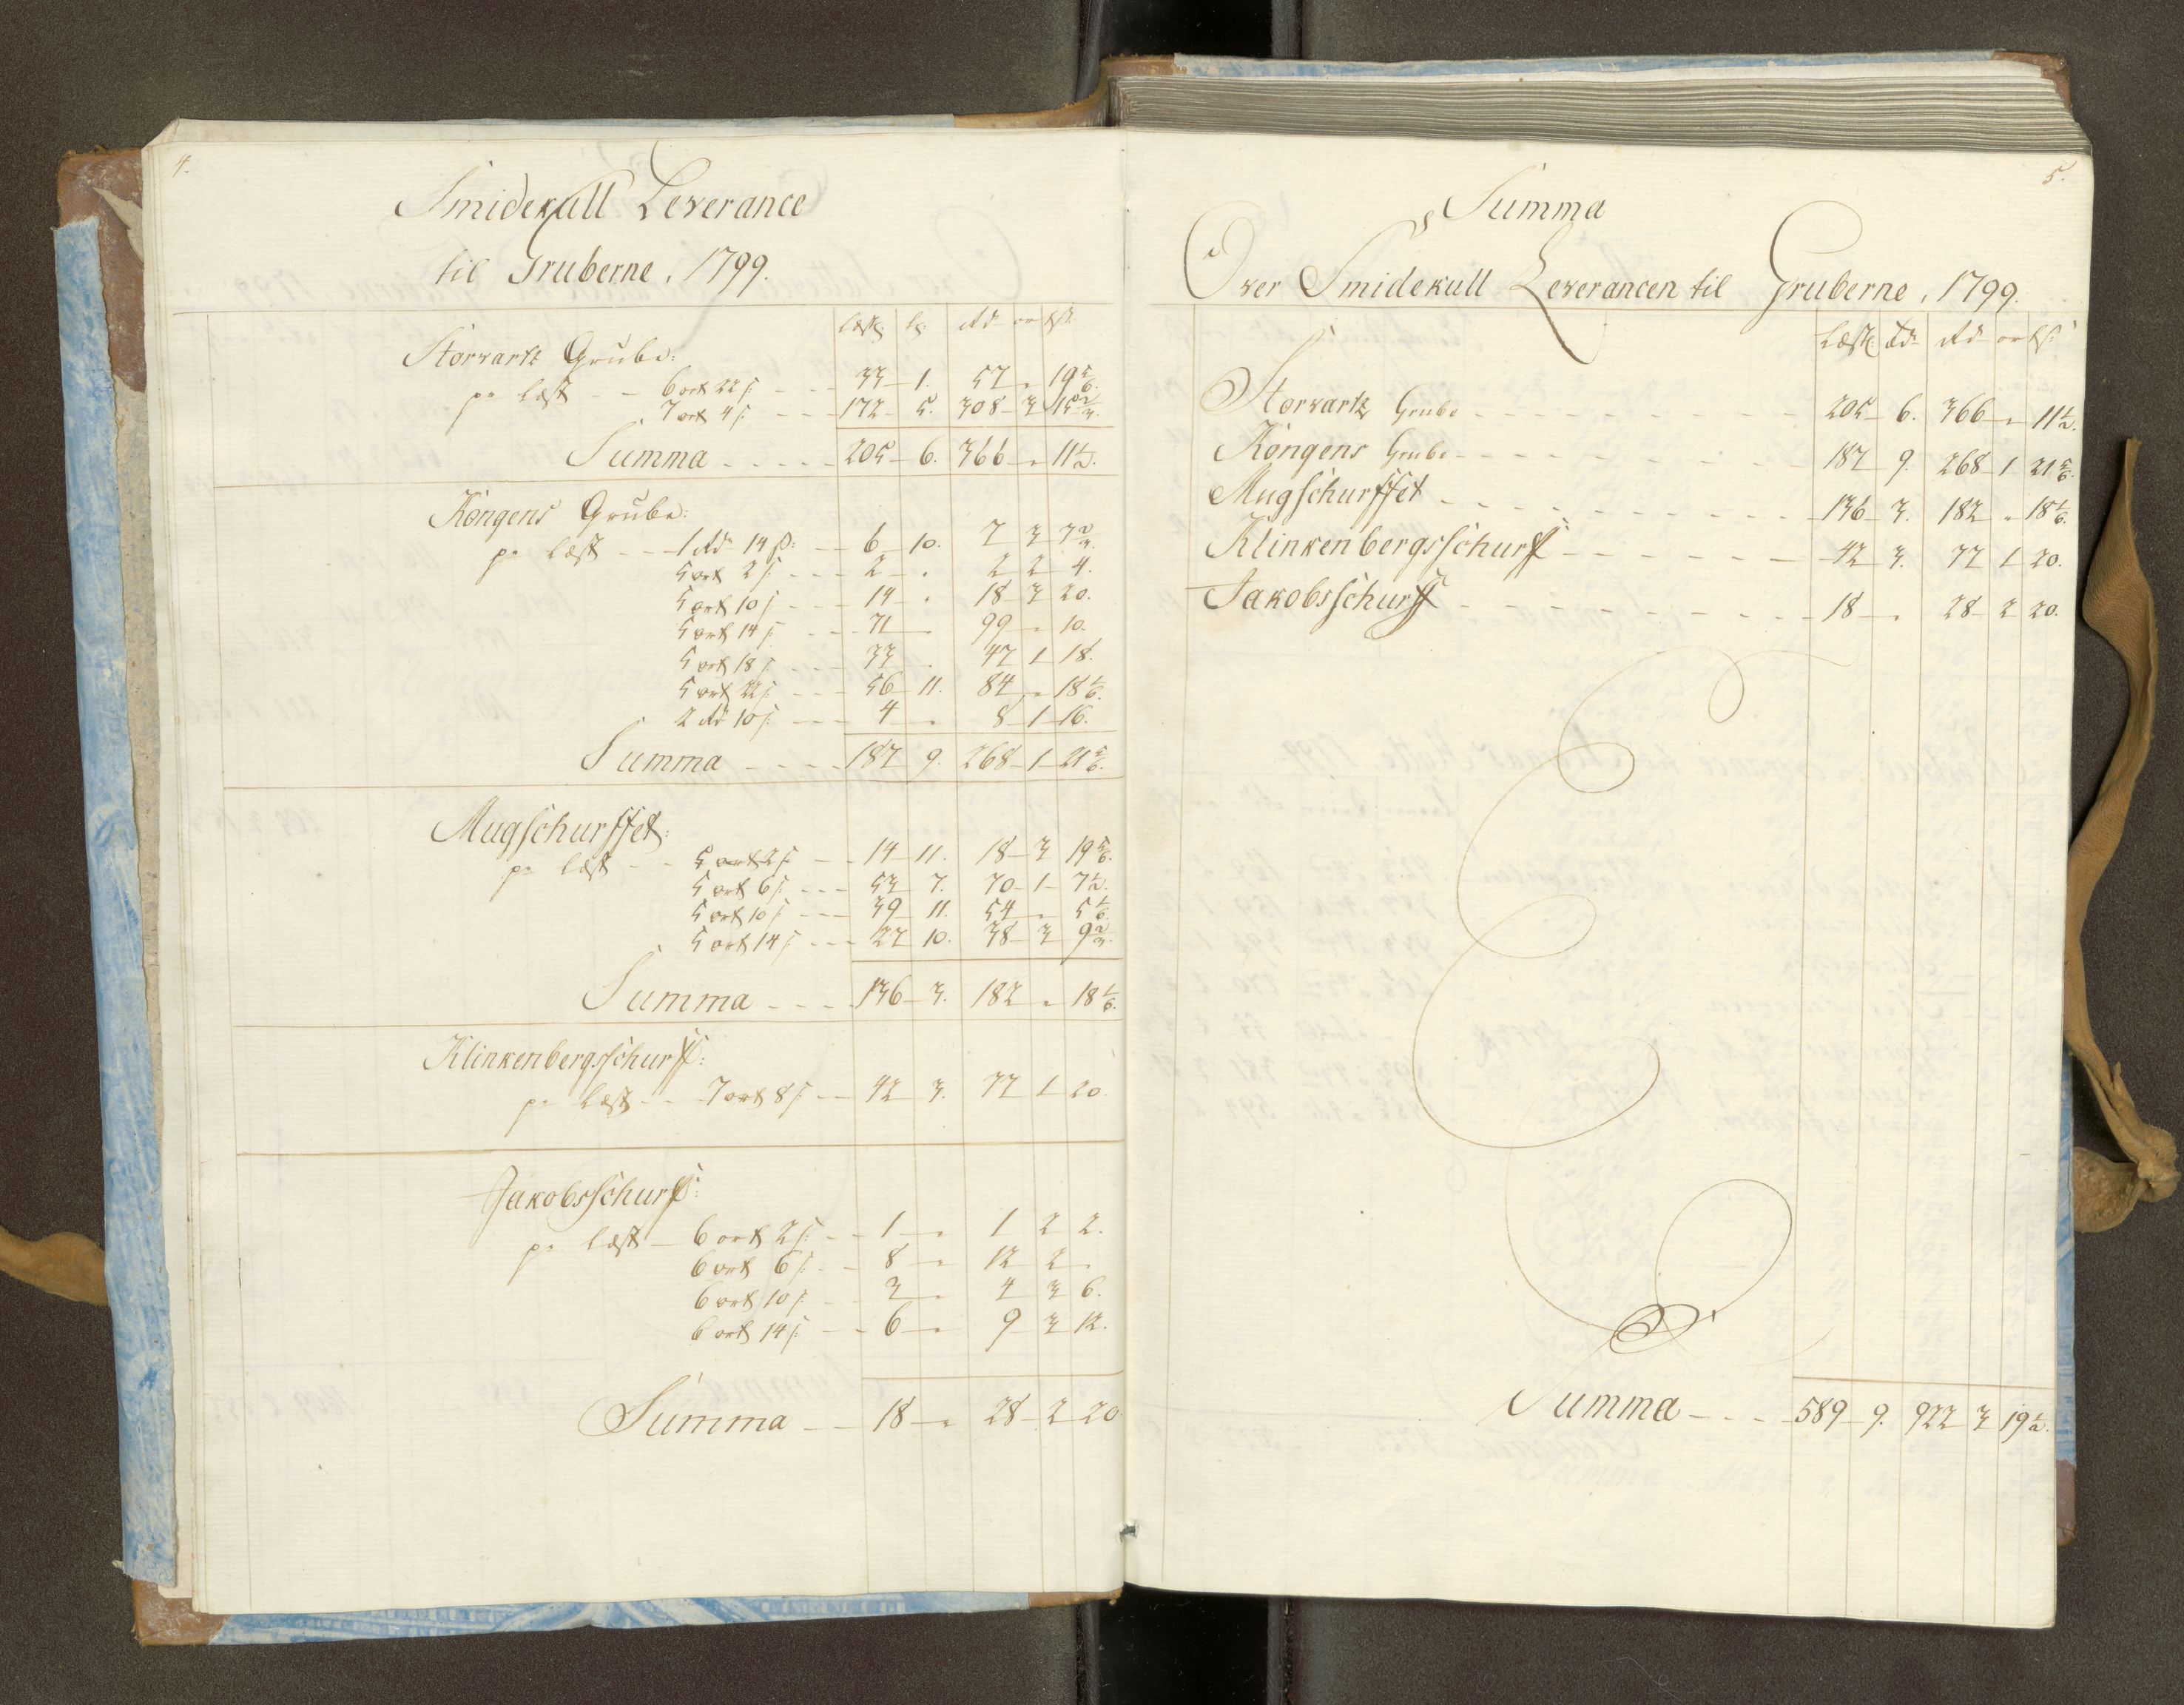 4.
Smidekull Leverance
til Gruberne, 1799.
læst: tr: Rd. ort ß:
Storvartz Grube:
pr læst - - 6 ort 22 ß: - - - 33 - 1. 57 „ 19 5/6.
7 ort 4 ß: - - - 172 - 5. 308 - 3 15 2/3.
Summa - - - - - 205 - 6. 366 „ 11 1/2.
Kongens Grube:
pr læst - - - 1 Rdr 14 ß: - - 6 - 10. 7 3 7 2/3.
5 ort 2 ß: - - - 2 - „ 2 2 4.
5 ort 10 ß - - - 14 „ 18 3 20.
5 ort 14 ß - - - 71 „ 99 „ 10.
5 ort 18 ß - - - 33 „ 47 1 18.
5 ort 22 ß: - - - 56 11. 84 „ 18 1/6.
2 Rd 10 ß: - - - 4 „ 8 1 16.
Summa - - - - 187 9. 268 1 21 5/6.
Mugschurffet:
pr læst - - 5 ort 2 ß: - - 14 - 11. 18 - 3 19 5/6.
5 ort 6 ß: - - - 53 7. 70 - 1 - 7 1/2.
5 ort 10 ß - - - 39 11. 54 „ 5 1/6.
5 ort 14 ß - - - 27 10. 38 - 3 9 2/3.
Summa - - - 136 - 3. 182 „ 18 1/6.
Klinkenbergsschurff:
pr læst - - 7 ort 8 ß - - 42 3. 77 1 20.
Jakobsschurff:
pr læst - 6 ort 2 ß: - - 1 „ 1 2 2.
6 ort 6 ß - - 8 „ 12 2 „
6 ort 10 ß - - 3 „ 4 3 6.
6 ort 14 ß - - 6 „ 9 3 12.
Summa - - 18 „ 28 - 2 20
5.
Summa
Over Smidekull Leverancen til Gruberne, 1799.
Læst: Tdr Rd ort ß:
Storvartz Grube - - - - 205 6. 366 „ 11 1/2.
Kongens Grube - - - - 187 9. 268 1 21 5/6.
Mugschurffet - - - - 136 3. 182 „ 18 1/6.
Klinkenbergsschurff - - - - 42 3. 77 1 20.
Jakobsschurff - - - - 18 „ 28 2 20.
Summa - - - 589 9. 922 3 19 1/2.